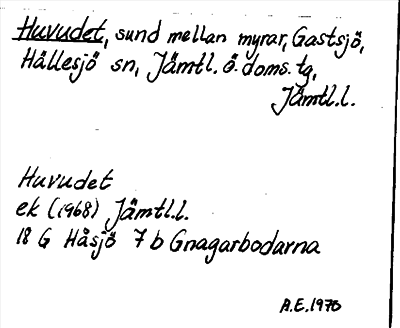 Huvudet, sund mellan myrar, Gastsjö,
Hällesjö sn, Jämtl. ö. doms. tg,
Jämtl.l.
Huvudet
ek (1968) Jämtl.l.
18 G Håsjö 7 b Gnagarbodarna
A.E. 1970